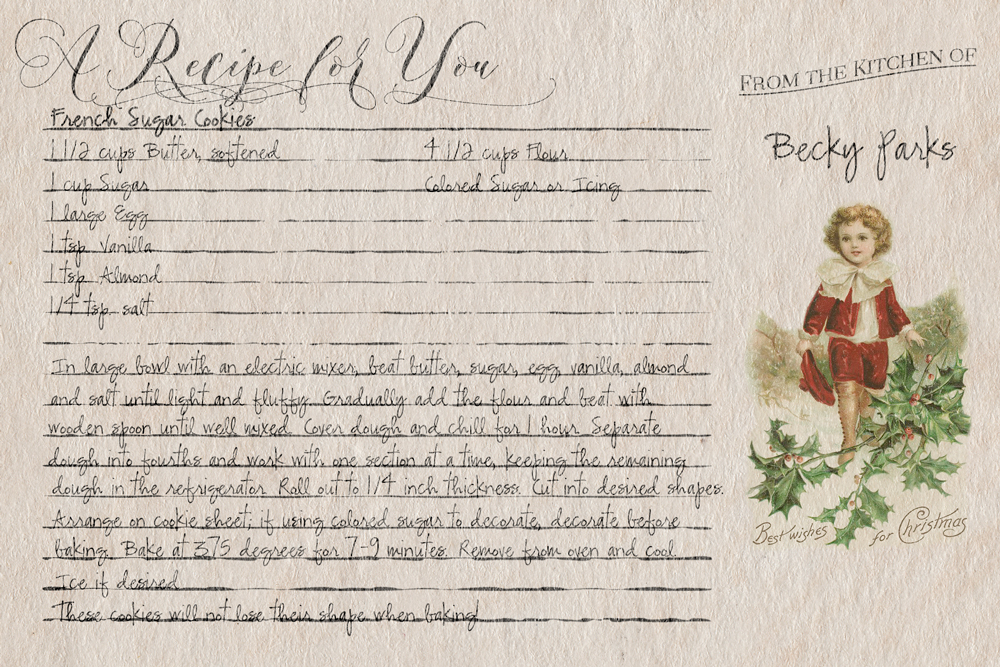 A Recipe for You
FROM THE KITCHEN OF
Becky Parks
French Sugar Cookies
1 1/2 cups Butter, softened
4 1/2 cups Flour
1 cup Sugar
Colored Sugar or Icing
1 large Egg
1 tsp Vanilla
1 tsp Almond
1/4 tsp salt
In large bowl with an electric mixer, beat butter, sugar, egg, vanilla, almond
and salt until light and fluffy. Gradually add the flour and beat with
wooden spoon until well mixed. Cover dough and chill for 1 hour. Separate
dough into fourths and work with one section at a time, keeping the remaining
dough in the refrigerator. Roll out to 1/4 inch thickness. Cut into desired shapes.
Arrange on cookie sheet; if using colored sugar to decorate, decorate before
baking. Bake at 375 degrees for 7-9 minutes. Remove from oven and cool.
Ice if desired.
These cookies will not lose their shape when baking!
Best wishes for Christmas